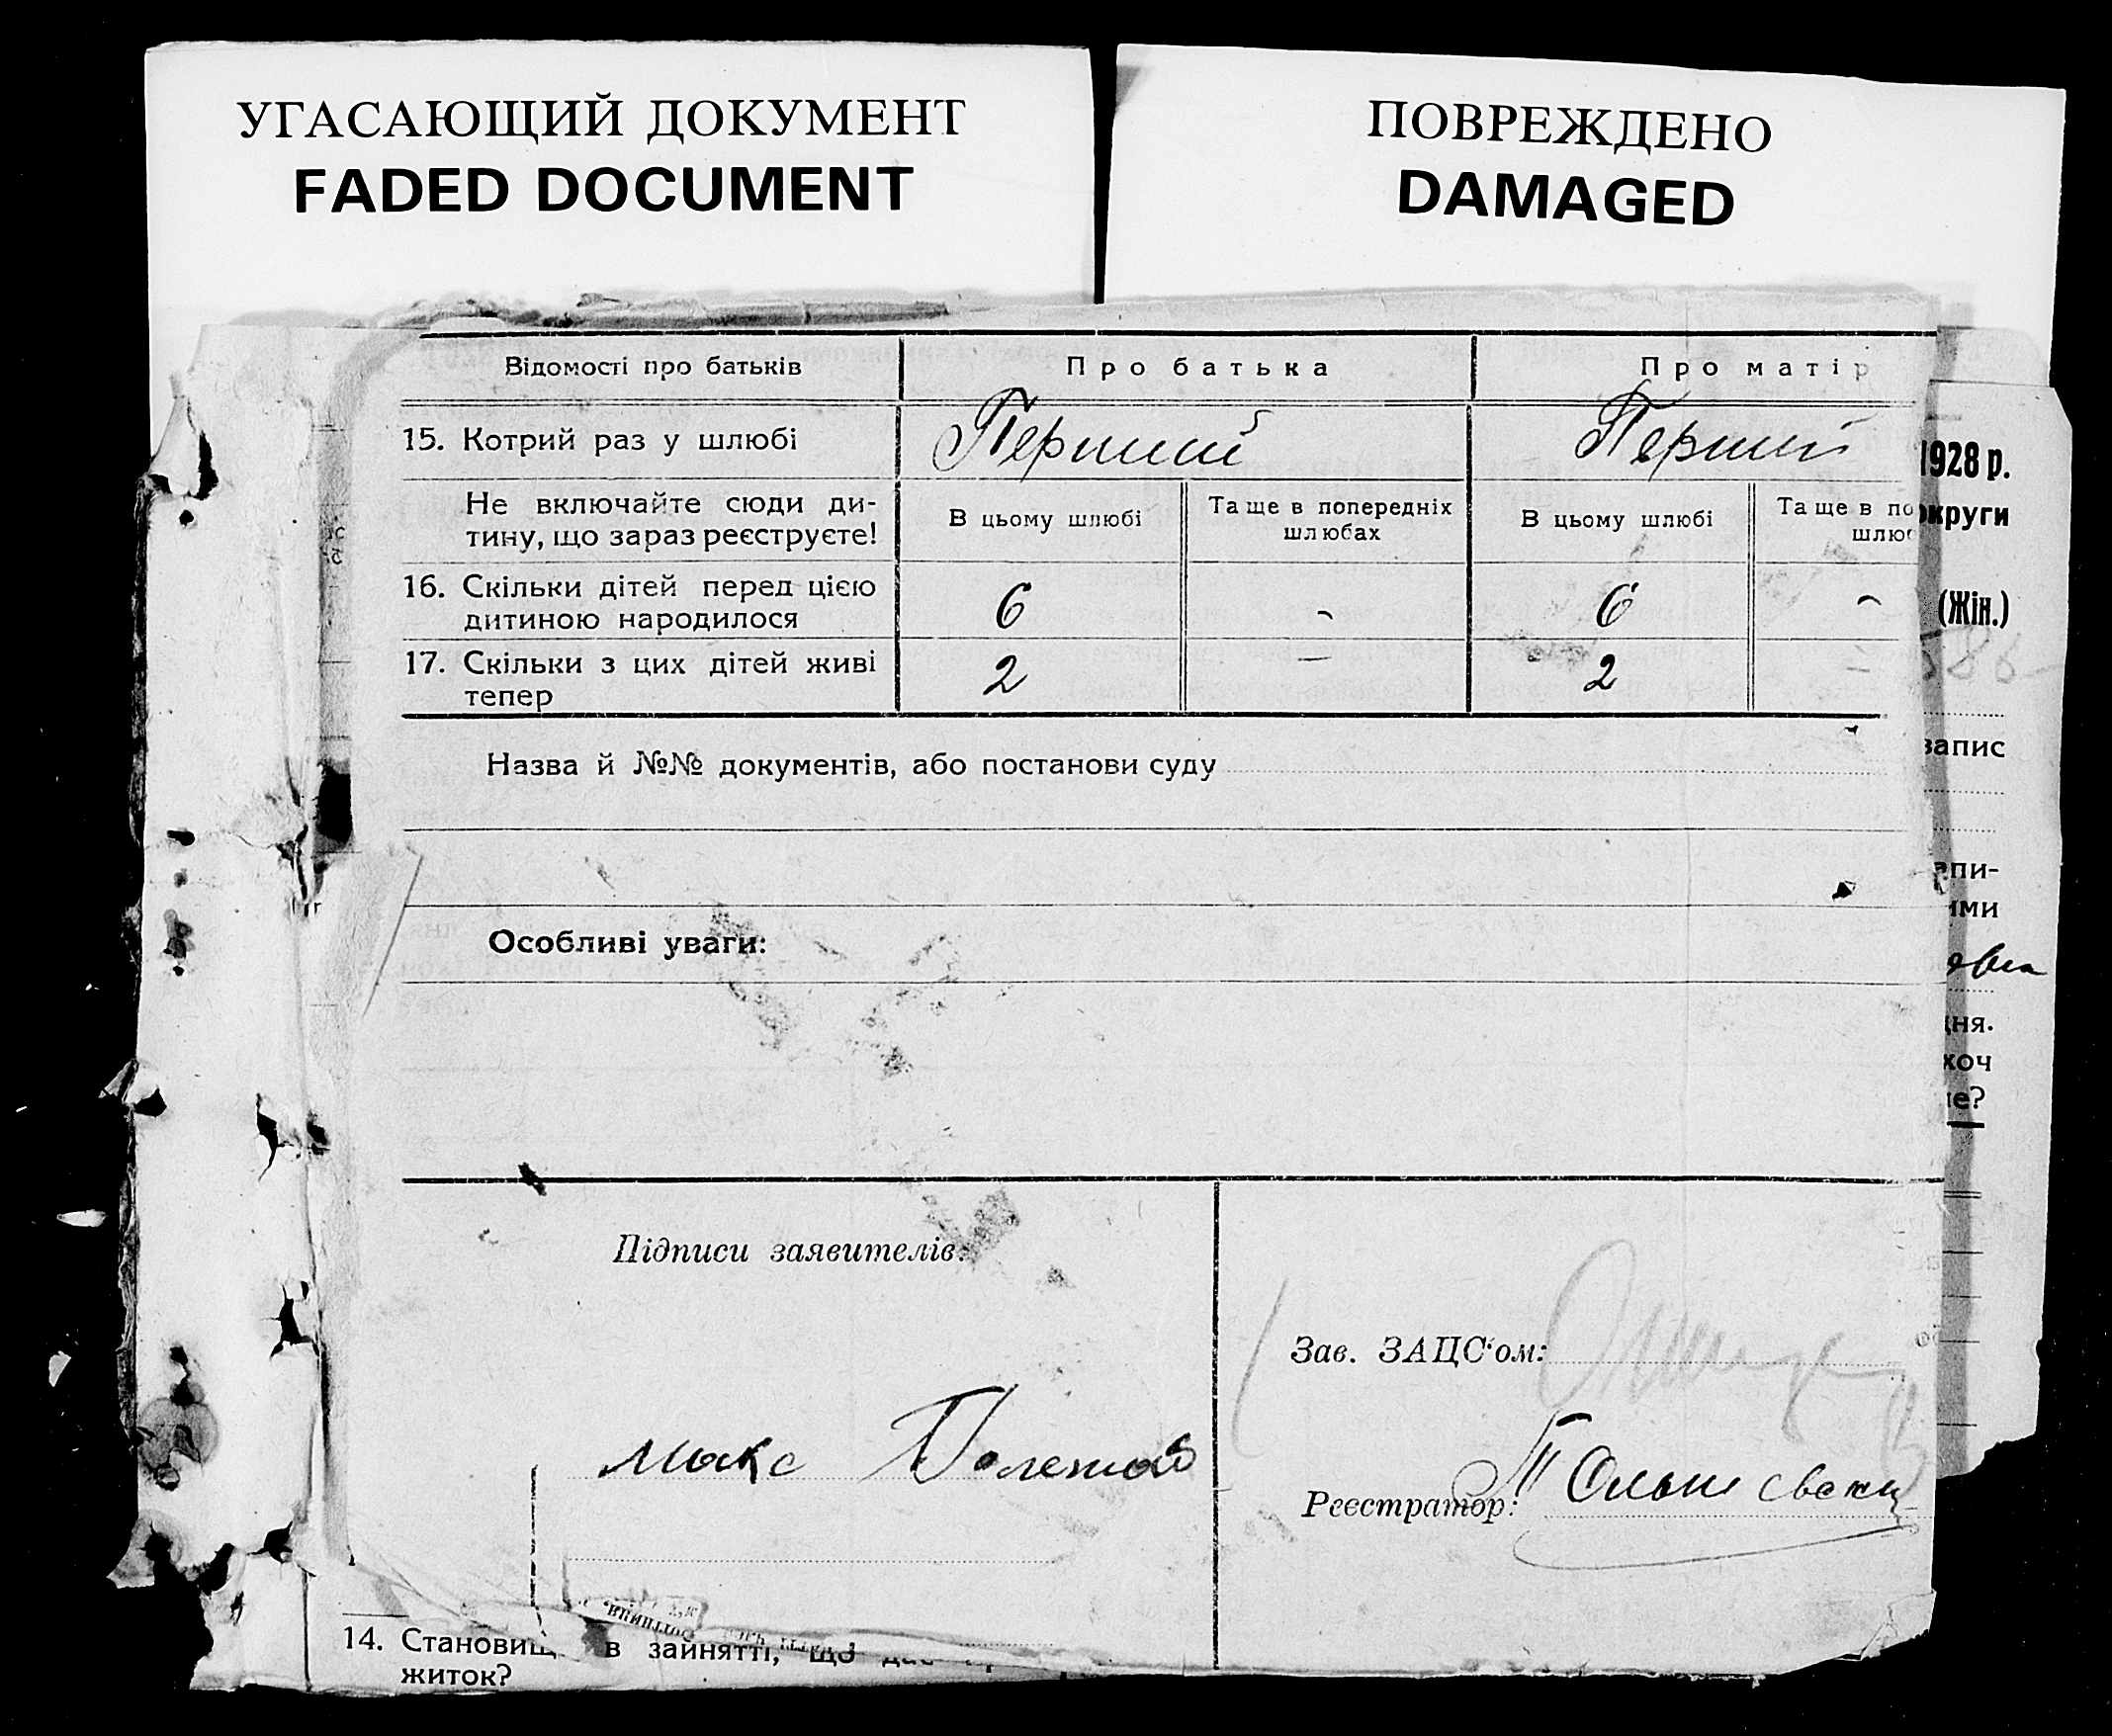 УГАСАЮЩИЙ ДОКУМЕНТ
FADED DOCUMENT
ПОВРЕЖДЕНО
DAMAGED
Відомості про батьків
Про батька
Про матір
15. Котрий раз у шлюбі
Перший
Перший
Не включайте сюди ди-
тину, що зараз реєструєте!
В цьому шлюбі
Та ще в попередніх
шлюбах
В цьому шлюбі
Та ще в по
шлюб
16. Скільки дітей перед цією
дитиною народилося
6
-
6
-
17. Скільки з цих дітей живі
тепер
2
—
2
—
Назва й №№ документів, або постанови суду
Особливі уваги:
Підписи заявителів:
Макс
Зав. ЗАЦС'ом:
Реєстратор:
1928 р.
округи
(Жін.)
запис
апи-
ими
дня.
хоч
не?
14. Становищ в зайнятті, що дає
житок?